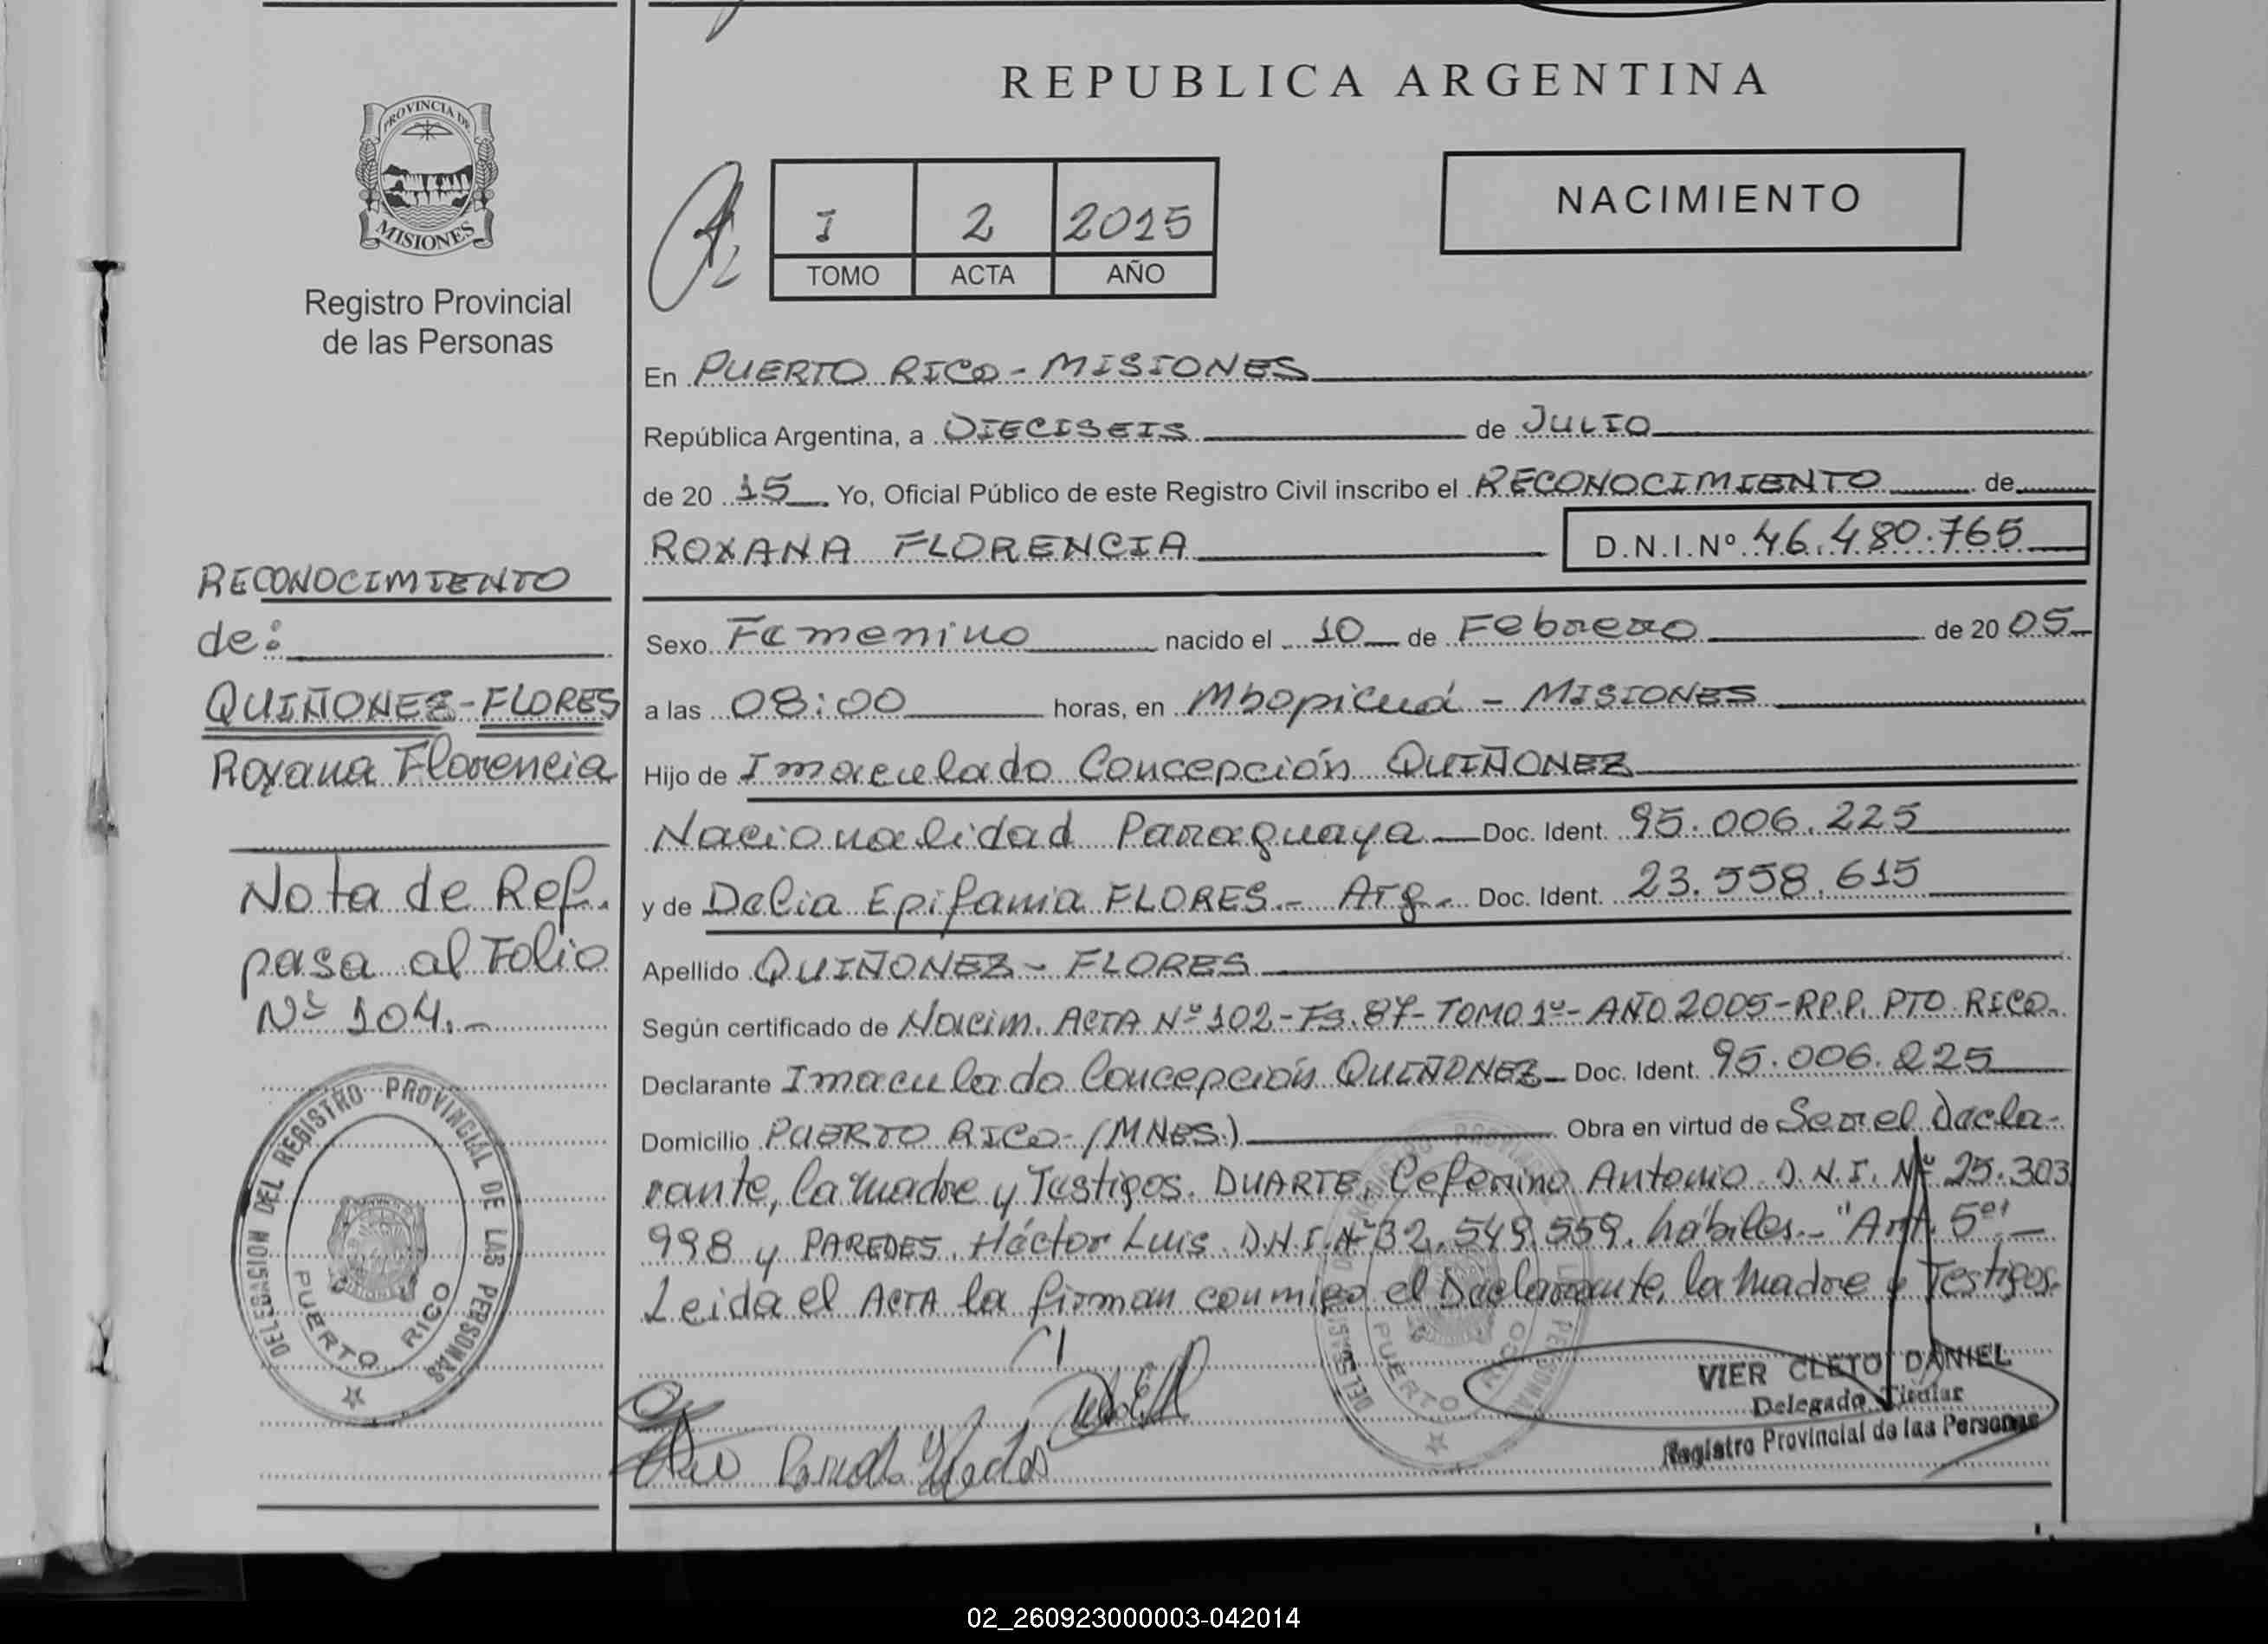 REPUBLICA ARGENTINA
PROVINCIA DE
MISIONES
Registro Provincial
de las Personas
I 2 2015
TOMO ACTA AÑO
NACIMIENTO
En PUERTO RICO - MISIONES
República Argentina, a DIECISEIS de JULIO
de 20 15 Yo, Oficial Público de este Registro Civil inscribo el RECONOCIMIENTO de
ROXANA FLORENCIA D.N.I.Nº 46.480.765
RECONOCIMIENTO
de:
QUIÑONEZ-FLORES
Roxana Florencia
Nota de Ref.
pasa al Folio
Nº 104.-
Sexo Femenino nacido el 10 de Febrero de 20 05
a las 08:00 horas, en Mbopicuá - MISIONES
Hijo de Imaculado Concepción QUIÑONEZ
Nacionalidad Paraguaya Doc. Ident. 95.006.225
y de Delia Epifania FLORES.- Arg.- Doc. Ident. 23.558.615
Apellido QUIÑONEZ - FLORES
Según certificado de Nacim. ACTA Nº 102-Fs. 87-TOMO 1º-AÑO 2005-RPP. PTO RICO.
Declarante Imaculado Concepción QUIÑONEZ Doc. Ident. 95.006.225
Domicilio PUERTO RICO-(MNES.) Obra en virtud de Ser el Decla-
rante, la madre y Testigos. DUARTE, Ceferino Antonio D.N.I. Nº 25.303
998 y PAREDES, Héctor Luis. D.N.I. Nº 32.549.559. hábiles.- "Art. 5º"
Leida el ACTA la firman conmigo el Declarante, la Madre y Testigos.
VIER CLETO DANIEL
Delegado Titular
Registro Provincial de las Personas
DELEGACION DEL REGISTRO PROVINCIAL DE LAS PERSONAS
PUERTO RICO
PUERTO RICO
02_260923000003-042014